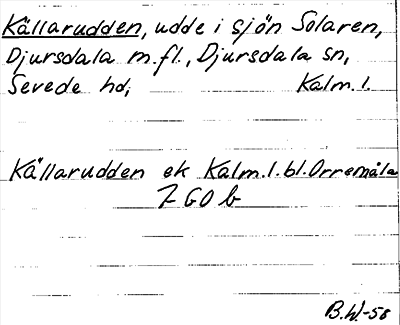 Källarudden, udde i sjön Solaren,
Djursdala m.fl., Djursdala sn,
Sevede hd, Kalm. l.
Källarudden ek Kalm. l. bl. Orremåla
7 G 0 b
B.W.-58